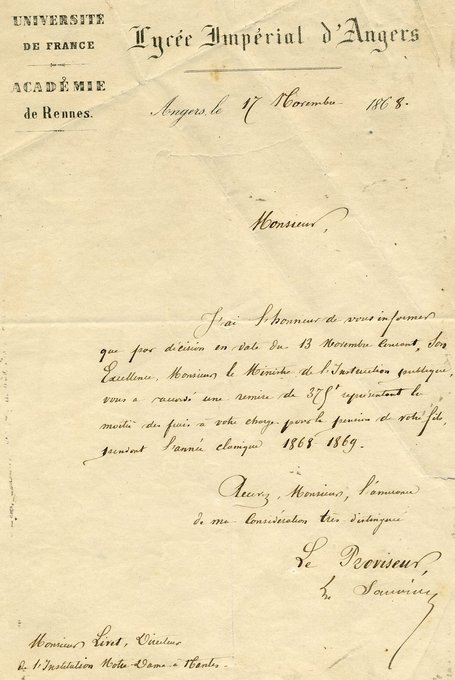 UNIVERSITÉ
DE FRANCE
ACADÉMIE
de Rennes.
Lycée Impérial d'Angers
Angers, le 17 Novembre 1868.
Monsieur,
J'ai l'honneur de vous informer
que par décision en date du 13 Novembre Courant, Son
Excellence, Monsieur le Ministre de l'Instruction publique,
vous a accordé une remise de 375f représentant la
moitié des frais à votre charge pour la pension de votre fils,
pendant l'année classique 1868 1869.
Recevez, Monsieur, l'assurance
de ma Considération très distinguée
Le Proviseur,
Monsieur Livet, Directeur
de l'Institution Notre-Dame à Nantes.